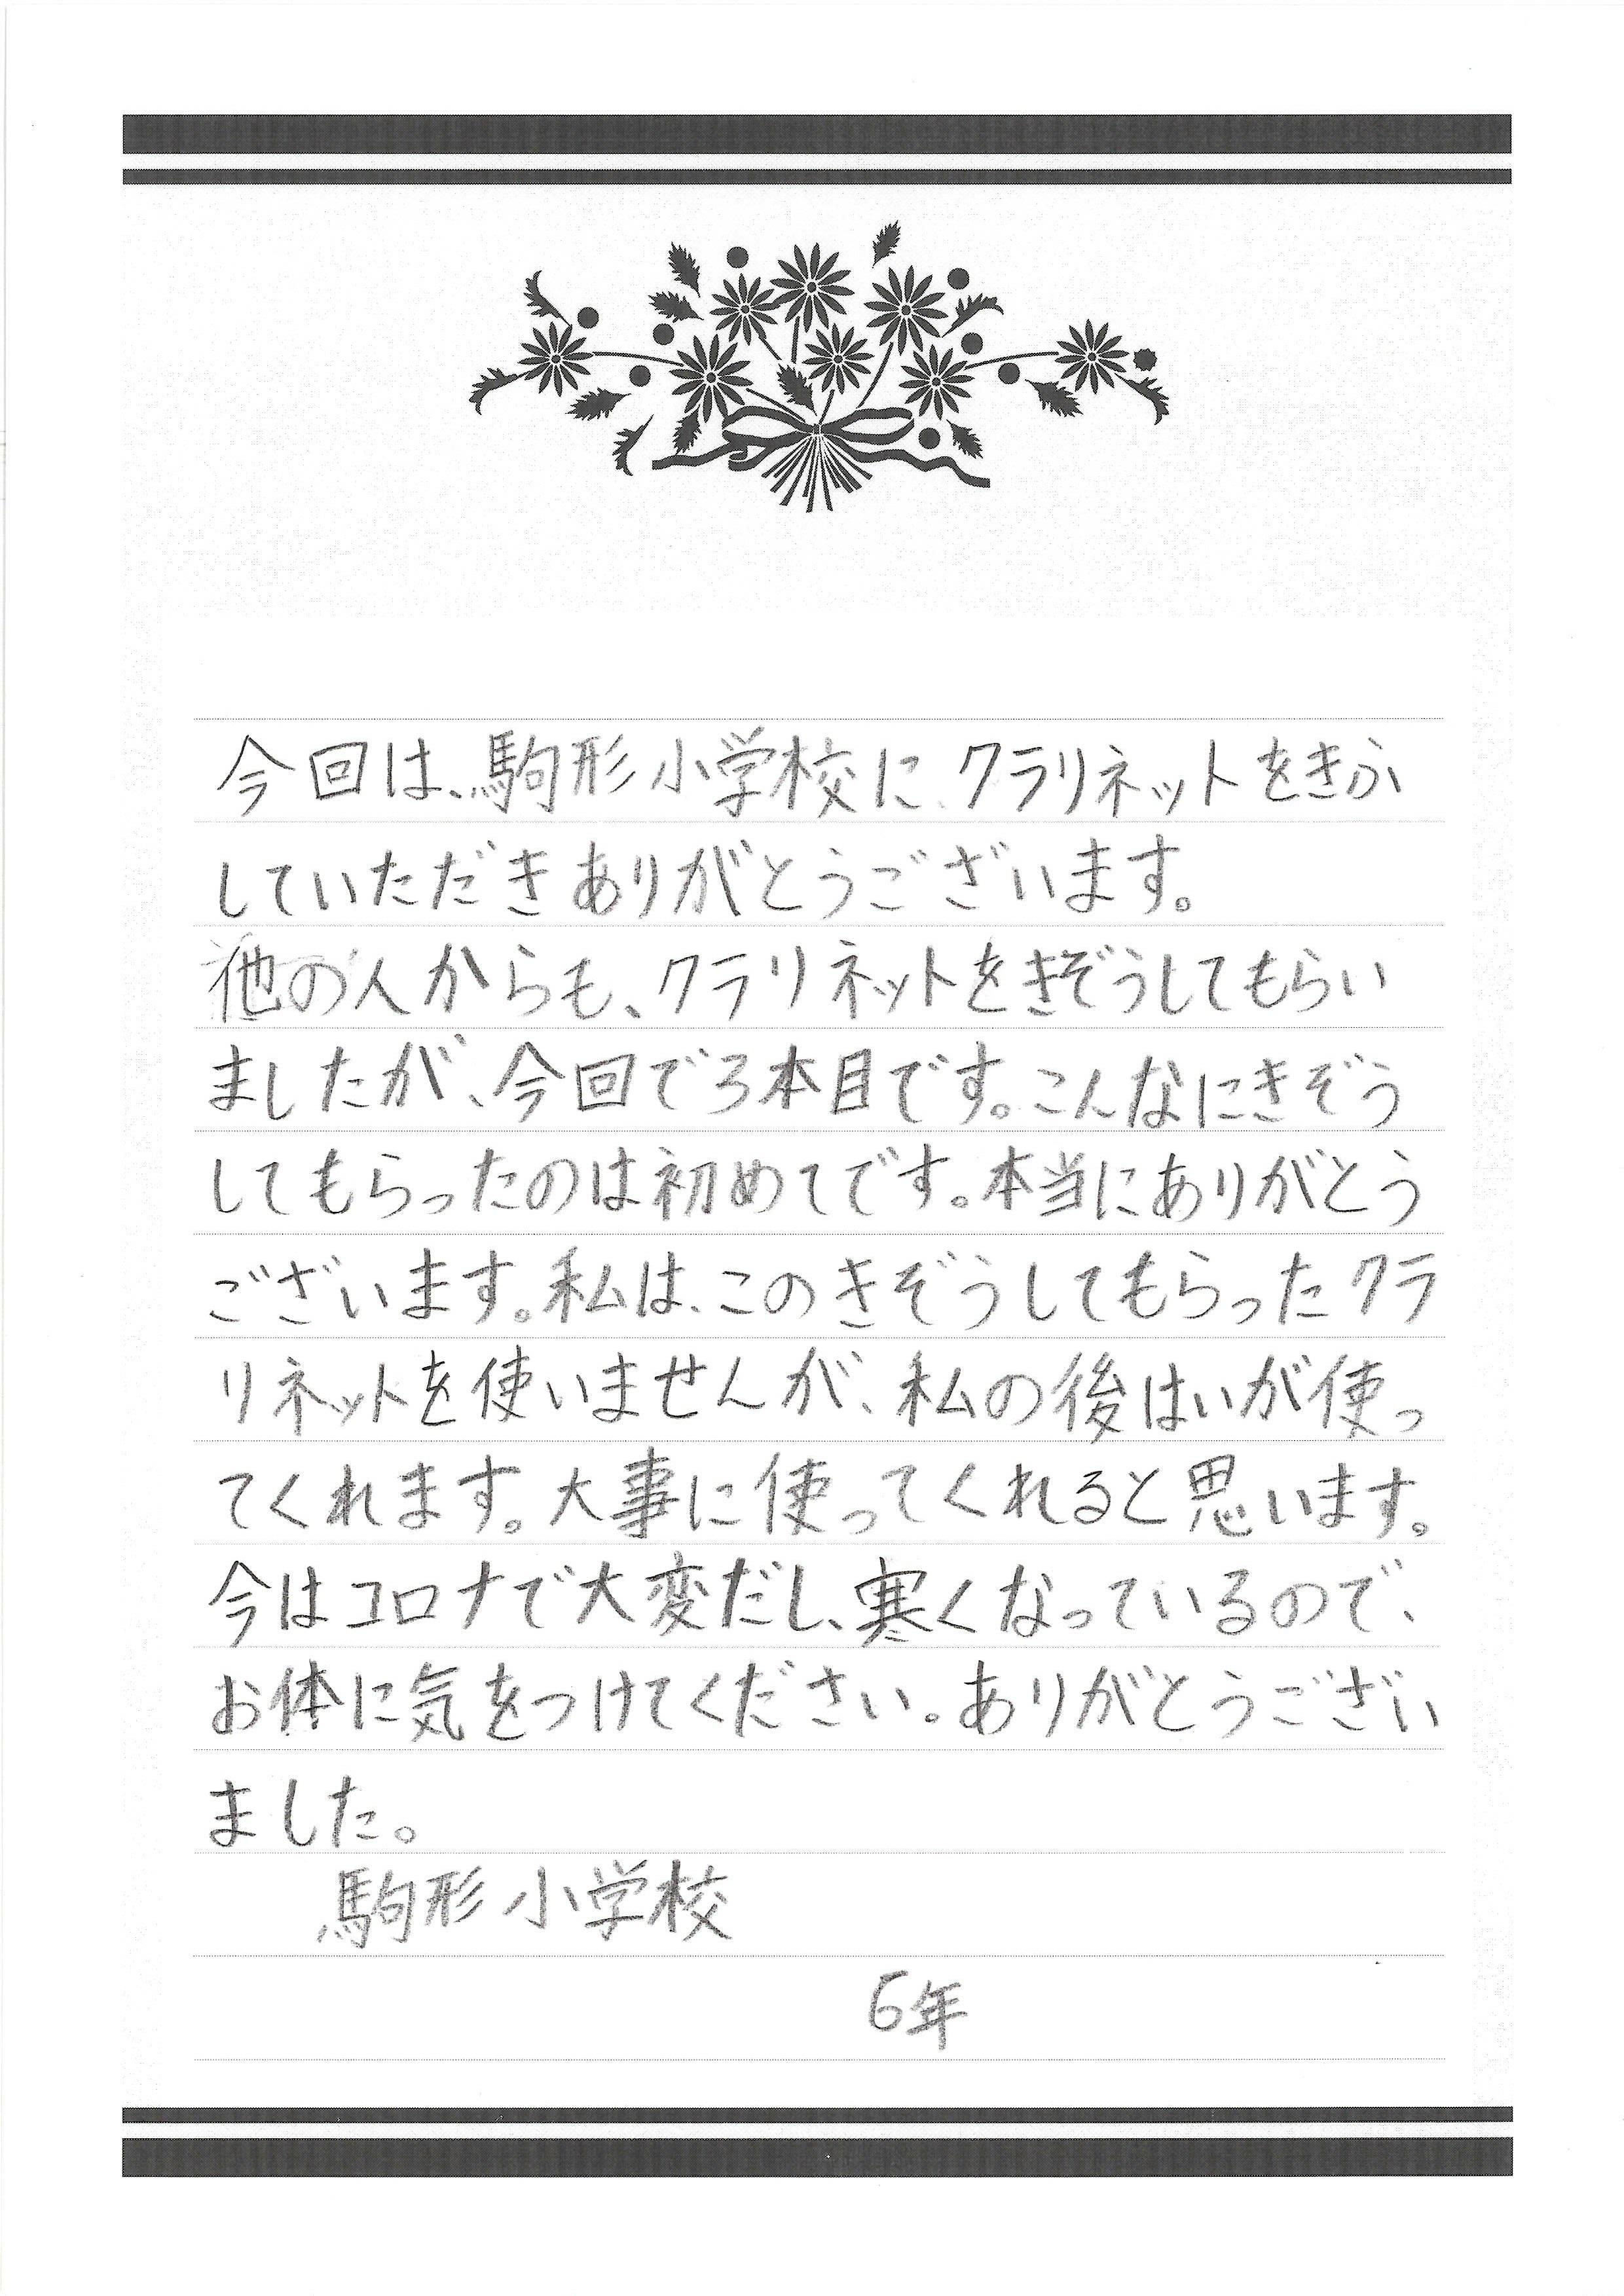 今回は、駒形小学校に、クラリネットをきふ
していただきありがとうございます。
他の人からも、クラリネットをきぞうしてもらい
ましたが、今回で3本目です。こんなにきぞう
してもらったのは初めてです。本当にありがとう
ございます。私は、このきぞうしてもらったクラ
リネットを使いませんが、私の後はいが使っ
てくれます。大事に使ってくれると思います。
今はコロナで大変だし、寒くなっているので、
お体に気をつけてください。ありがとうござい
ました。
駒形小学校
6年